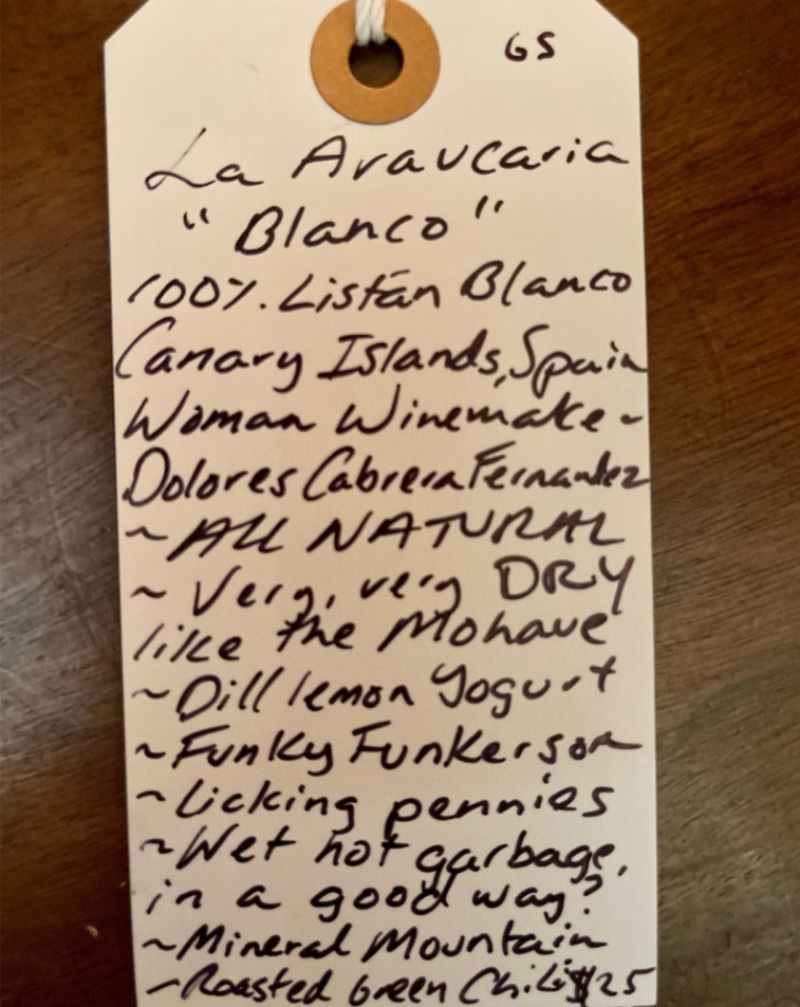 GS
La Araucaria
"Blanco"
100%. Listán Blanco
Canary Islands, Spain
Woman Winemake-
Dolores Cabrera Fernandez
~ALL NATURAL
~Very, very DRY
like the Mohave
~Dill lemon Yogurt
~Funky Funkerson
~Licking pennies
~Wet hot garbage,
in a good way?
~Mineral Mountain
~Roasted Green Chili $25